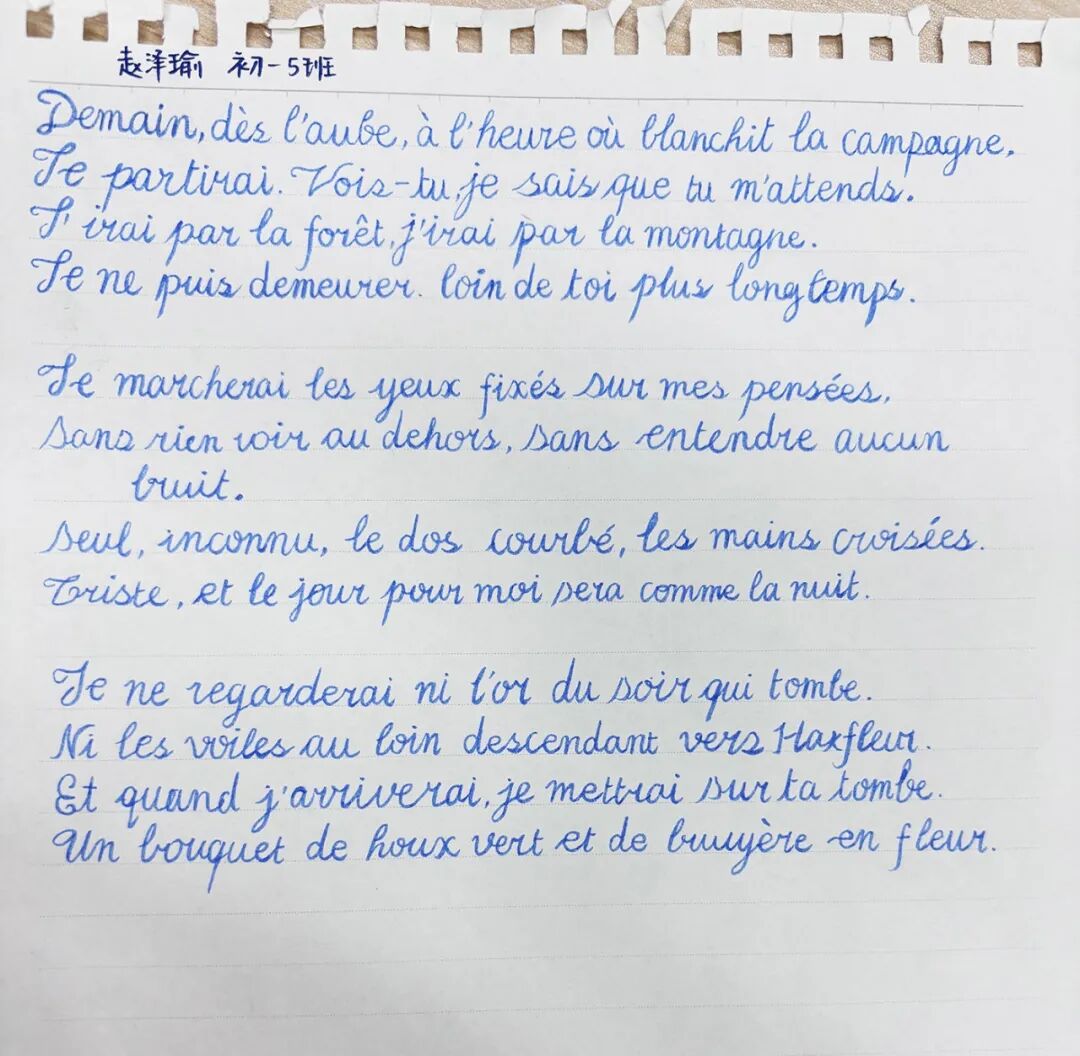 赵泽瑜 初一5班
Demain, dès l'aube, à l'heure où blanchit la campagne,
Je partirai. Vois-tu, je sais que tu m'attends.
J'irai par la forêt, j'irai par la montagne.
Je ne puis demeurer. loin de toi plus longtemps.
Je marcherai les yeux fixés sur mes pensées,
Sans rien voir au dehors, sans entendre aucun
bruit.
Seul, inconnu, le dos courbé, les mains croisées.
Triste, et le jour pour moi sera comme la nuit.
Je ne regarderai ni l'or du soir qui tombe.
Ni les voiles au loin descendant vers Haxfleur.
Et quand j'arriverai, je mettrai sur ta tombe.
Un bouquet de houx vert et de bruuyère en fleur.